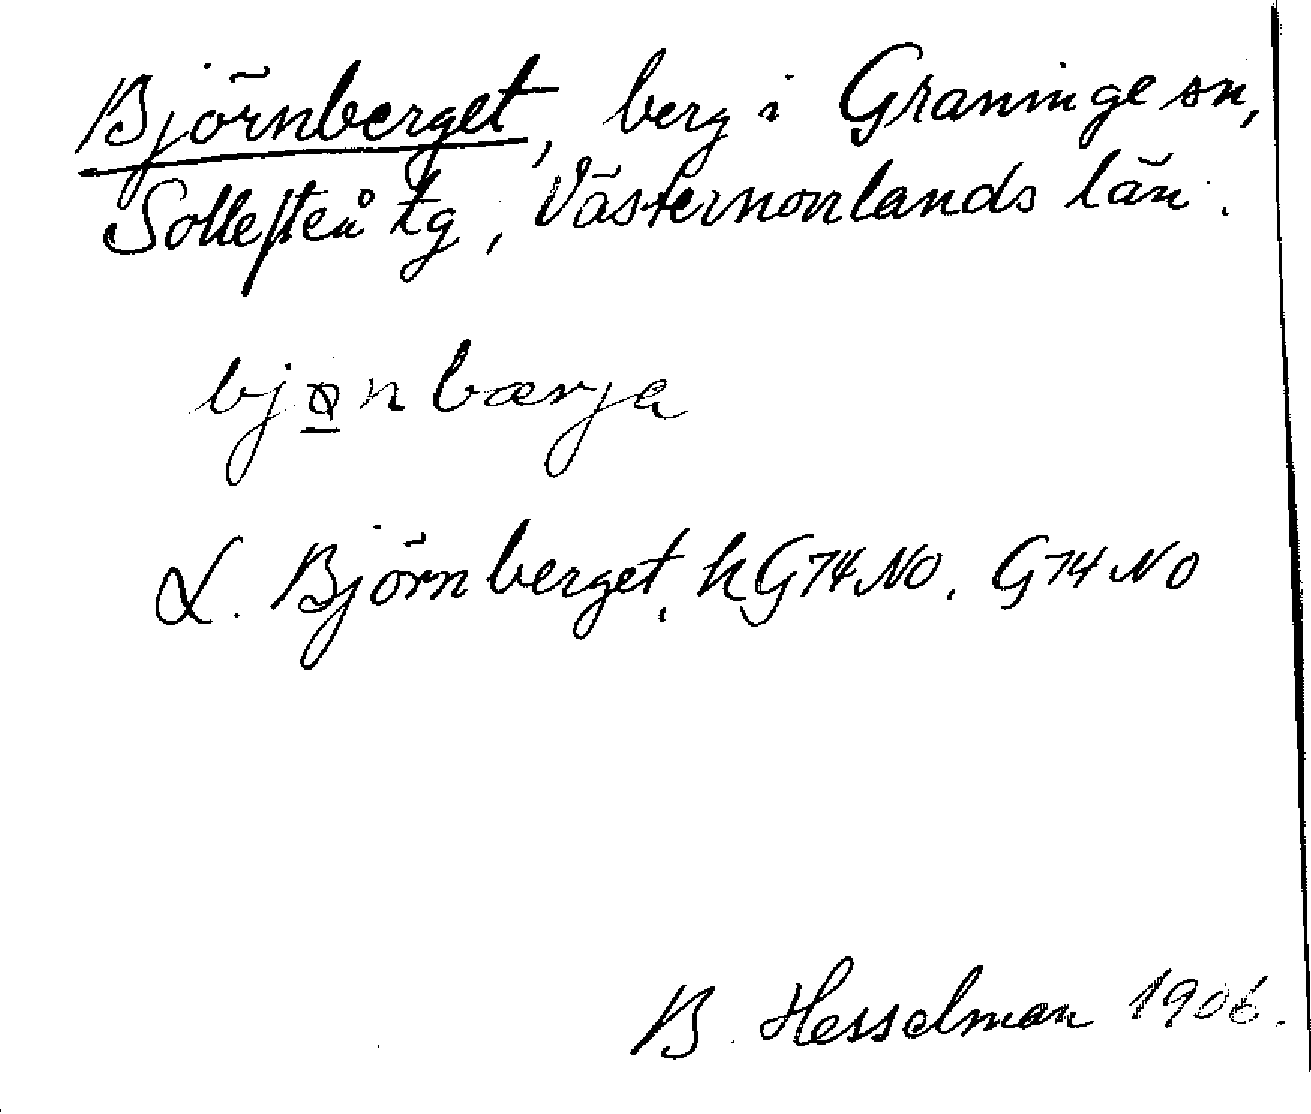 Björnberget, berg i Graninge sn,
Sollefteå tg, Västernorrlands län.
bjønbærja
L. Björnberget. h G74NO. G74NO
B. Hesselman 1906.